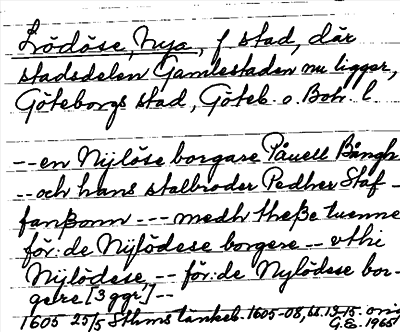 Lödöse, Nya, f stad, där
stadsdelen Gamlestaden nu ligger,
Göteborgs stad, Göteb. o. Boh. l
-- en Nijlöse borgare Påuell Bångh
-- och hans stalbroder Pedher Staf-
fanßonn --- medh theße tuenne
för:de Nijlödese borgere -- vthi
Nijlödese, -- för:de Nylödese bor-
gere [3 ggr.] --
1605 25/5 Sthms tänkeb. 1605-08, ss. 13-15. orig
G.E. 1965